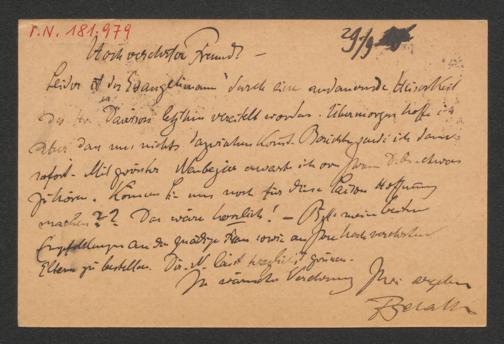 I.N. 181.979
29/9
Hochverehrter Freund! –
Leider ist der „Evangelimann" durch eine andauernde Heiserkeit
des Dawison letzthin vereitelt worden. Übermorgen hoffe ich
aber dass uns nichts dazwischen kommt. Bericht sende ich dann
sofort. Mit grösster Neubegier erwarte ich von Ihnen
zu hören. Können Sie uns noch für diese Saison Hoffnung
machen?? Das wäre herrlich! – Bitte meine besten
Empfehlungen an die gnädige Frau sowie an Ihre hochverehrten
Eltern zu bestellen. lässt herzlichst grüssen.
In wärmster Verehrung Ihr ergebener